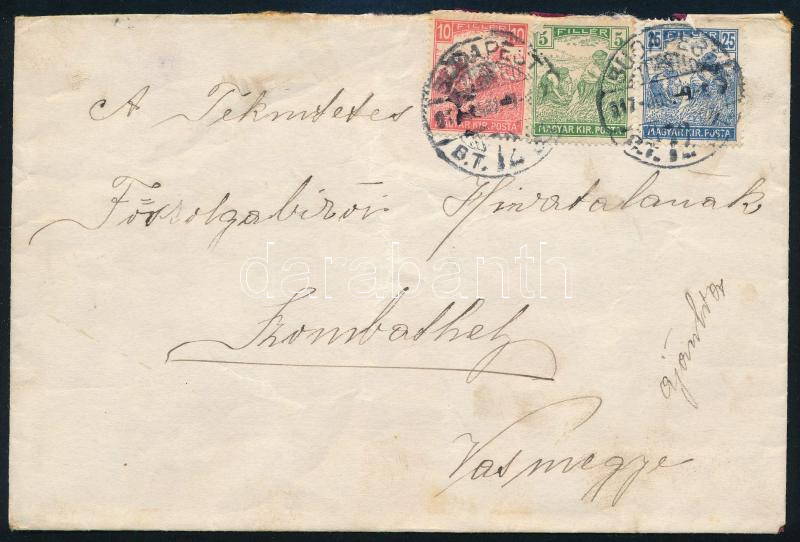 10 FILLÉR 10
MAGYAR KIR. POSTA
5 FILLÉR 5
MAGYAR KIR. POSTA
25 FILLÉR 25
MAGYAR KIR. POSTA
BUDAPEST
B.T. 72
BUDAPEST
B.T. 72
A Tekintetes
Főszolgabirói Hivatalának
darabanth
Szombathely
ajánlva
Vasmegye